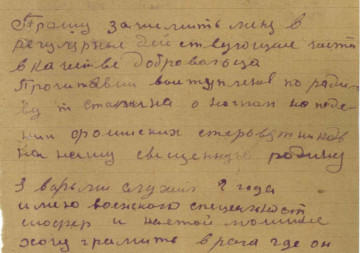 Прошу зачислить меня в
регулярные действующие части
в качестве добровольца
Прочитавши выступление по радио
т Сталина о наглом нападе
нии фашистских стервятников
на нашу священную родину
Я в армии служил 2 года
имею военную специальность
шофер и
хочу громить врага где он